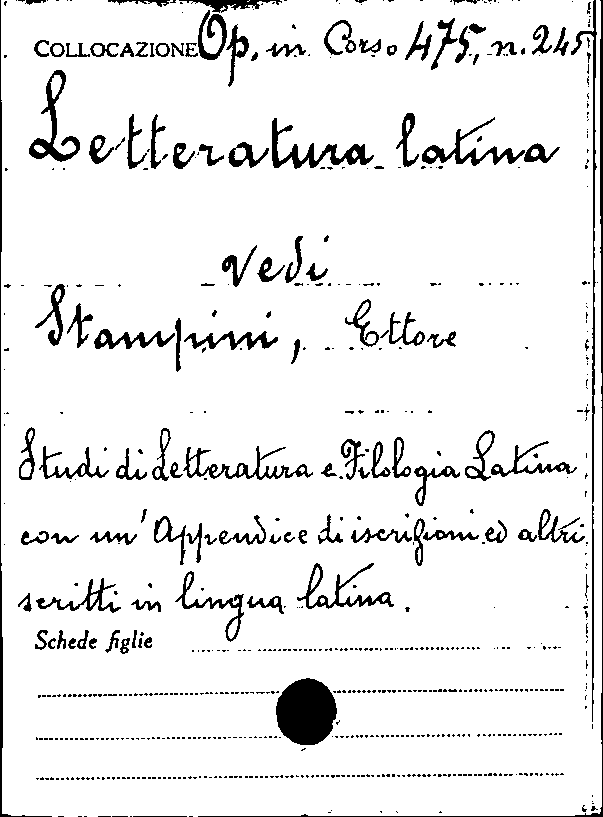 COLLOCAZIONE Op. in Corso 475, n. 245
Letteratura latina
vedi
Stampini, Ettore
Studi di Letteratura e Filologia Latina
con un' Appendice di iscrizioni ed altri
scritti in lingua latina.
Schede figlie